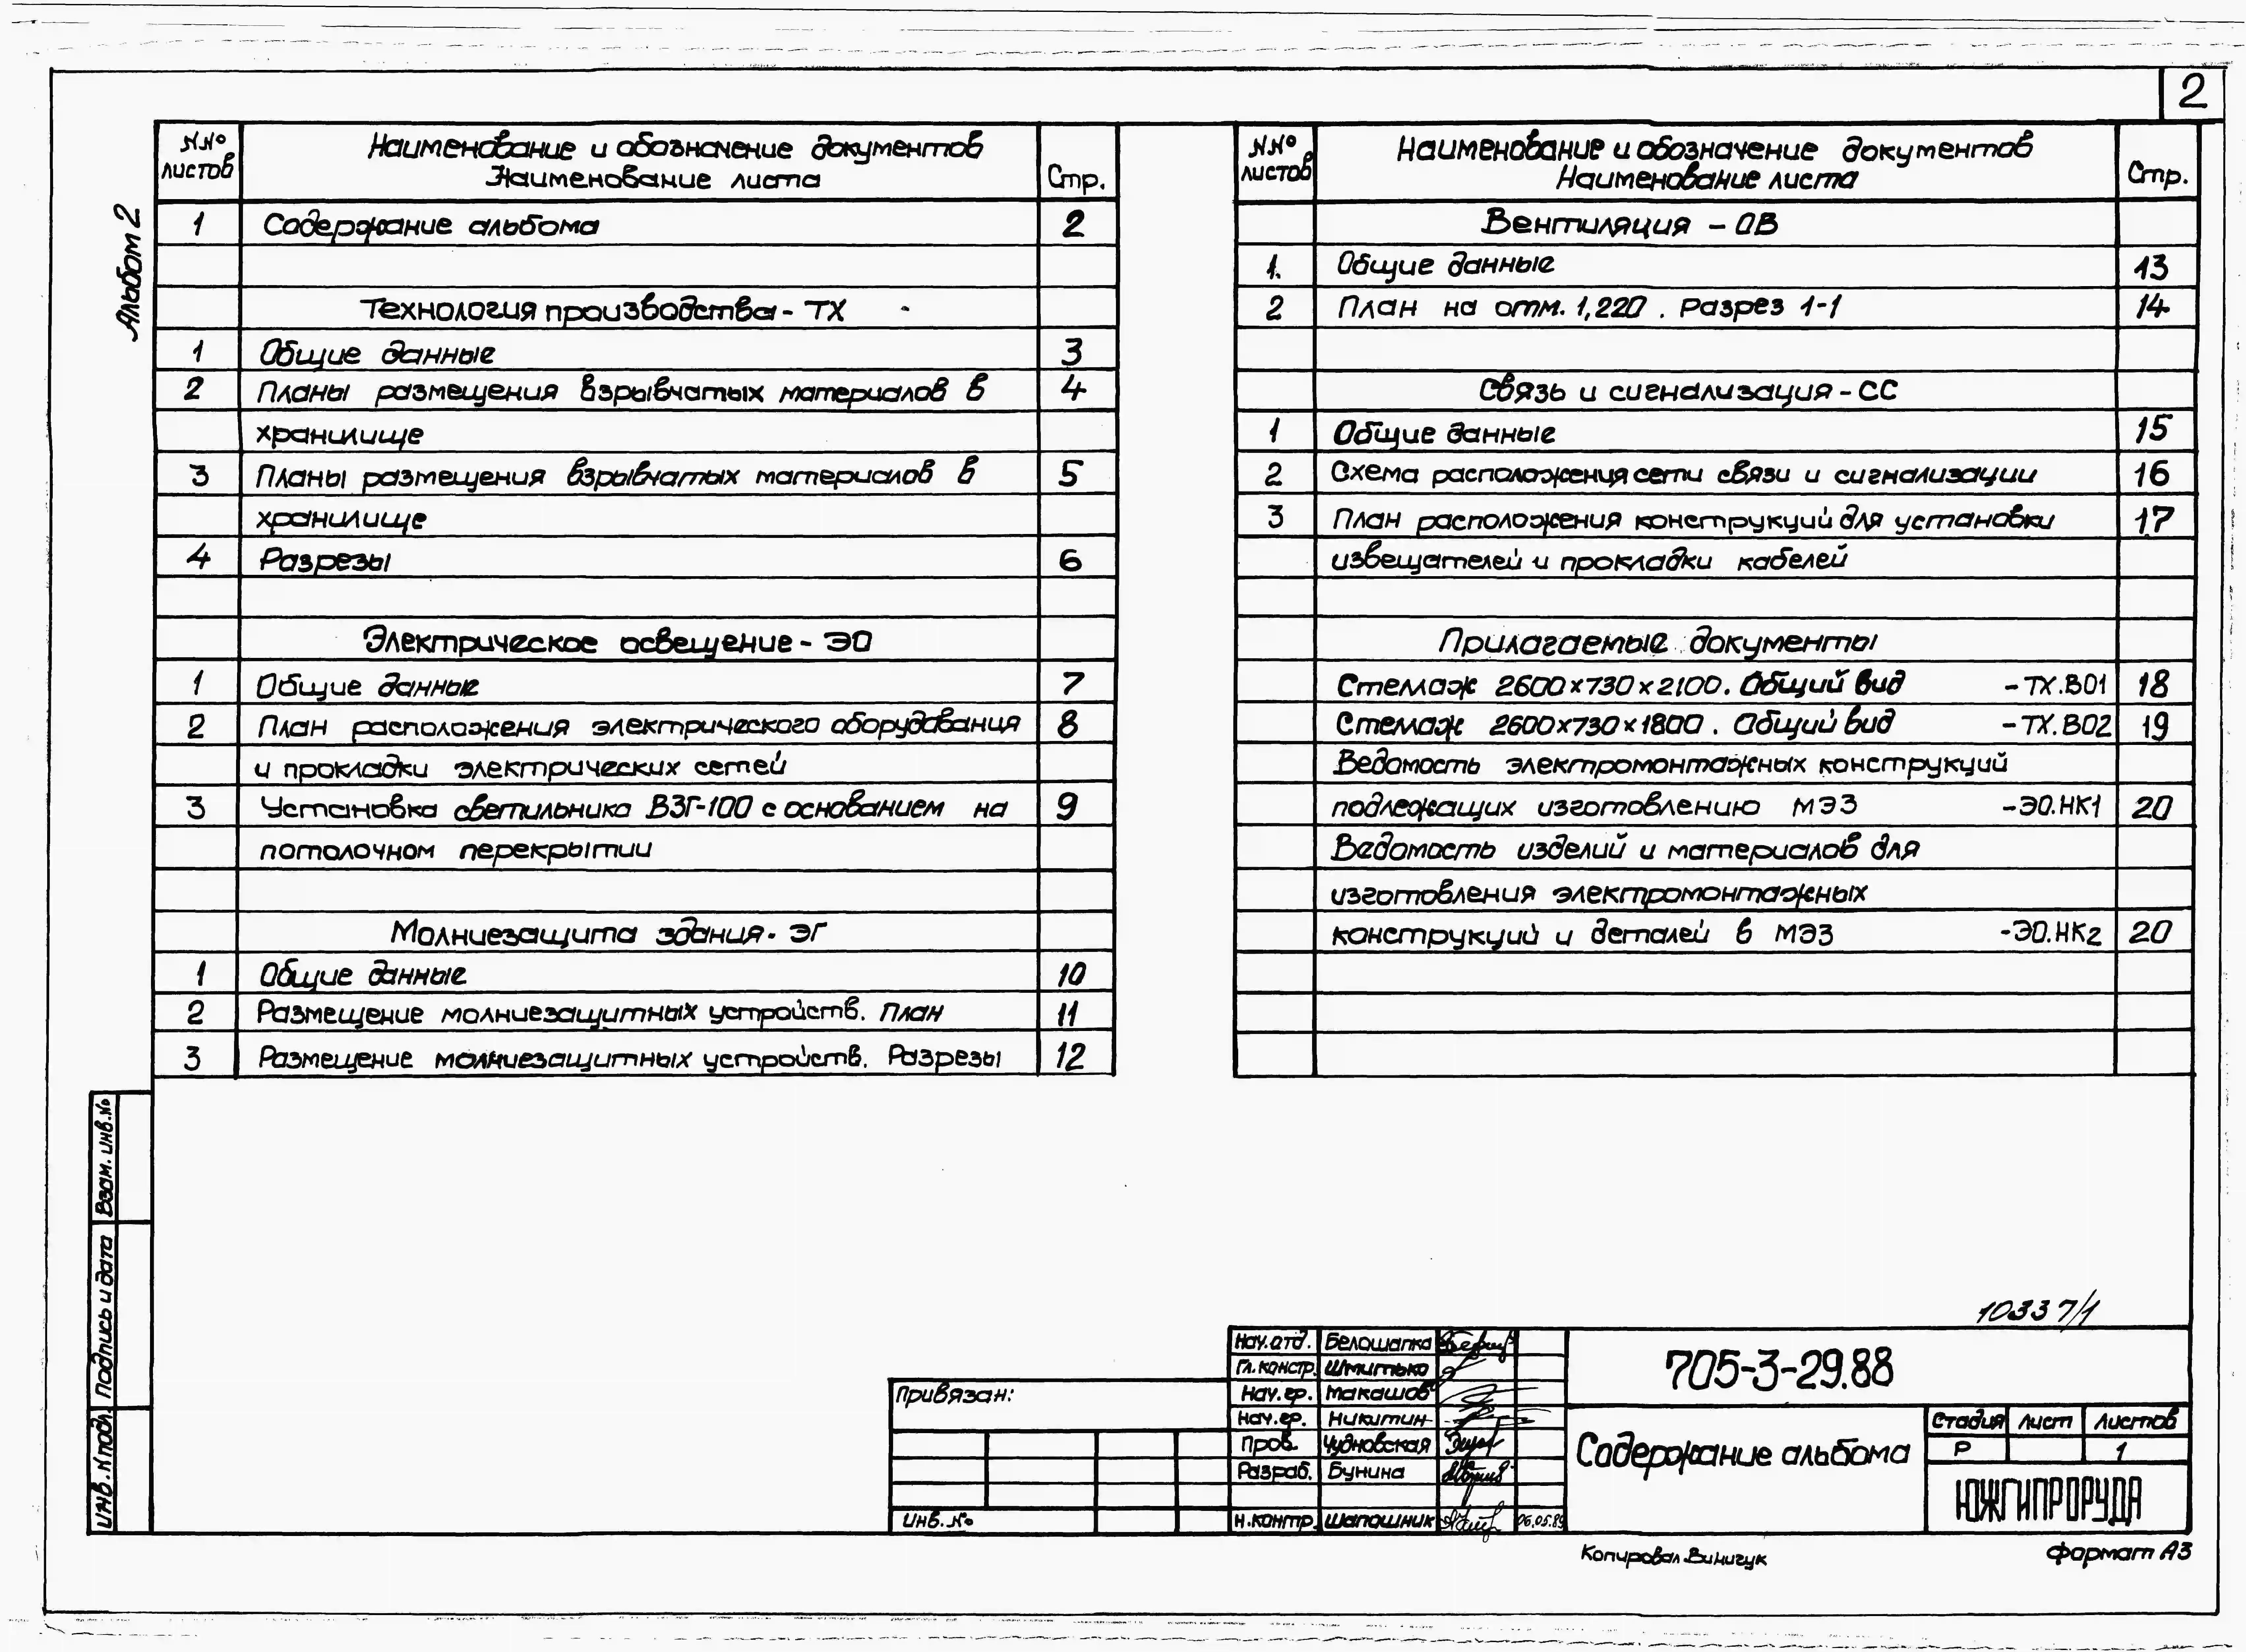 2
Альбом 2
N.Nº листов
Наименование и обозначение документов
Наименование листа
Стр.
1 Содержание альбома 2
Технология производства - ТХ
1 Общие данные 3
2 Планы размещения взрывчатых материалов в 4
хранилище
3 Планы размещения взрывчатых материалов в 5
хранилище
4 Разрезы 6
Электрическое освещение - ЭО
1 Общие данные 7
2 План расположения электрического оборудования 8
и прокладки электрических сетей
3 Установка светильника ВЗГ-100 с основанием на 9
потолочном перекрытии
Молниезащита здания - ЭГ
1 Общие данные 10
2 Размещение молниезащитных устройств. План 11
3 Размещение молниезащитных устройств. Разрезы 12
N.Nº листов
Наименование и обозначение документов
Наименование листа
Стр.
Вентиляция - ОВ
1. Общие данные 13
2 План на отм. 1,220. Разрез 1-1 14
Связь и сигнализация - СС
1 Общие данные 15
2 Схема расположения сети связи и сигнализации 16
3 План расположения конструкций для установки 17
извещателей и прокладки кабелей
Прилагаемые документы
Стеллаж 2600×730×2100. Общий вид -ТХ.ВО1 18
Стеллаж 2600×730×1800. Общий вид -ТХ.ВО2 19
Ведомость электромонтажных конструкций
подлежащих изготовлению МЭЗ -ЭО.НК1 20
Ведомость изделий и материалов для
изготовления электромонтажных
конструкций и деталей в МЭЗ -ЭО.НК2 20
Взам. инв.№
Подпись и дата
Инв.№подл.
10337/1
Привязан:
Инв.№
Нач.отд. Белошапка
Гл.констр. Шмитько
Нач.гр. Макашов
Нач.гр. Никитин
Пров. Чудновская
Разраб. Бунина
Н.контр. Шапошник 06.05.89
705-3-29.88
Содержание альбома
Стадия Лист Листов
Р 1
ЮЖГИПРОРУДА
Копировал Винигук
Формат А3